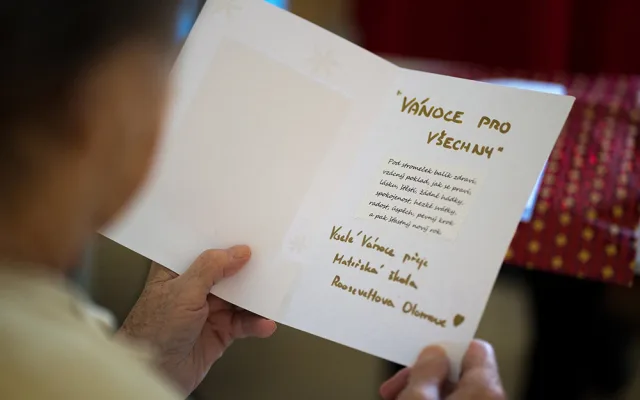 "VÁNOCE PRO
VŠECHNY"
Pod stromeček balík zdraví,
vzácný poklad, jak se praví,
lásku, štěstí, žádné hádky,
spokojenost, hezké svátky,
radost, úspěch, pevný krok
a pak šťastný nový rok.
Veselé Vánoce přeje
Mateřská škola
Rooseveltova Olomouc